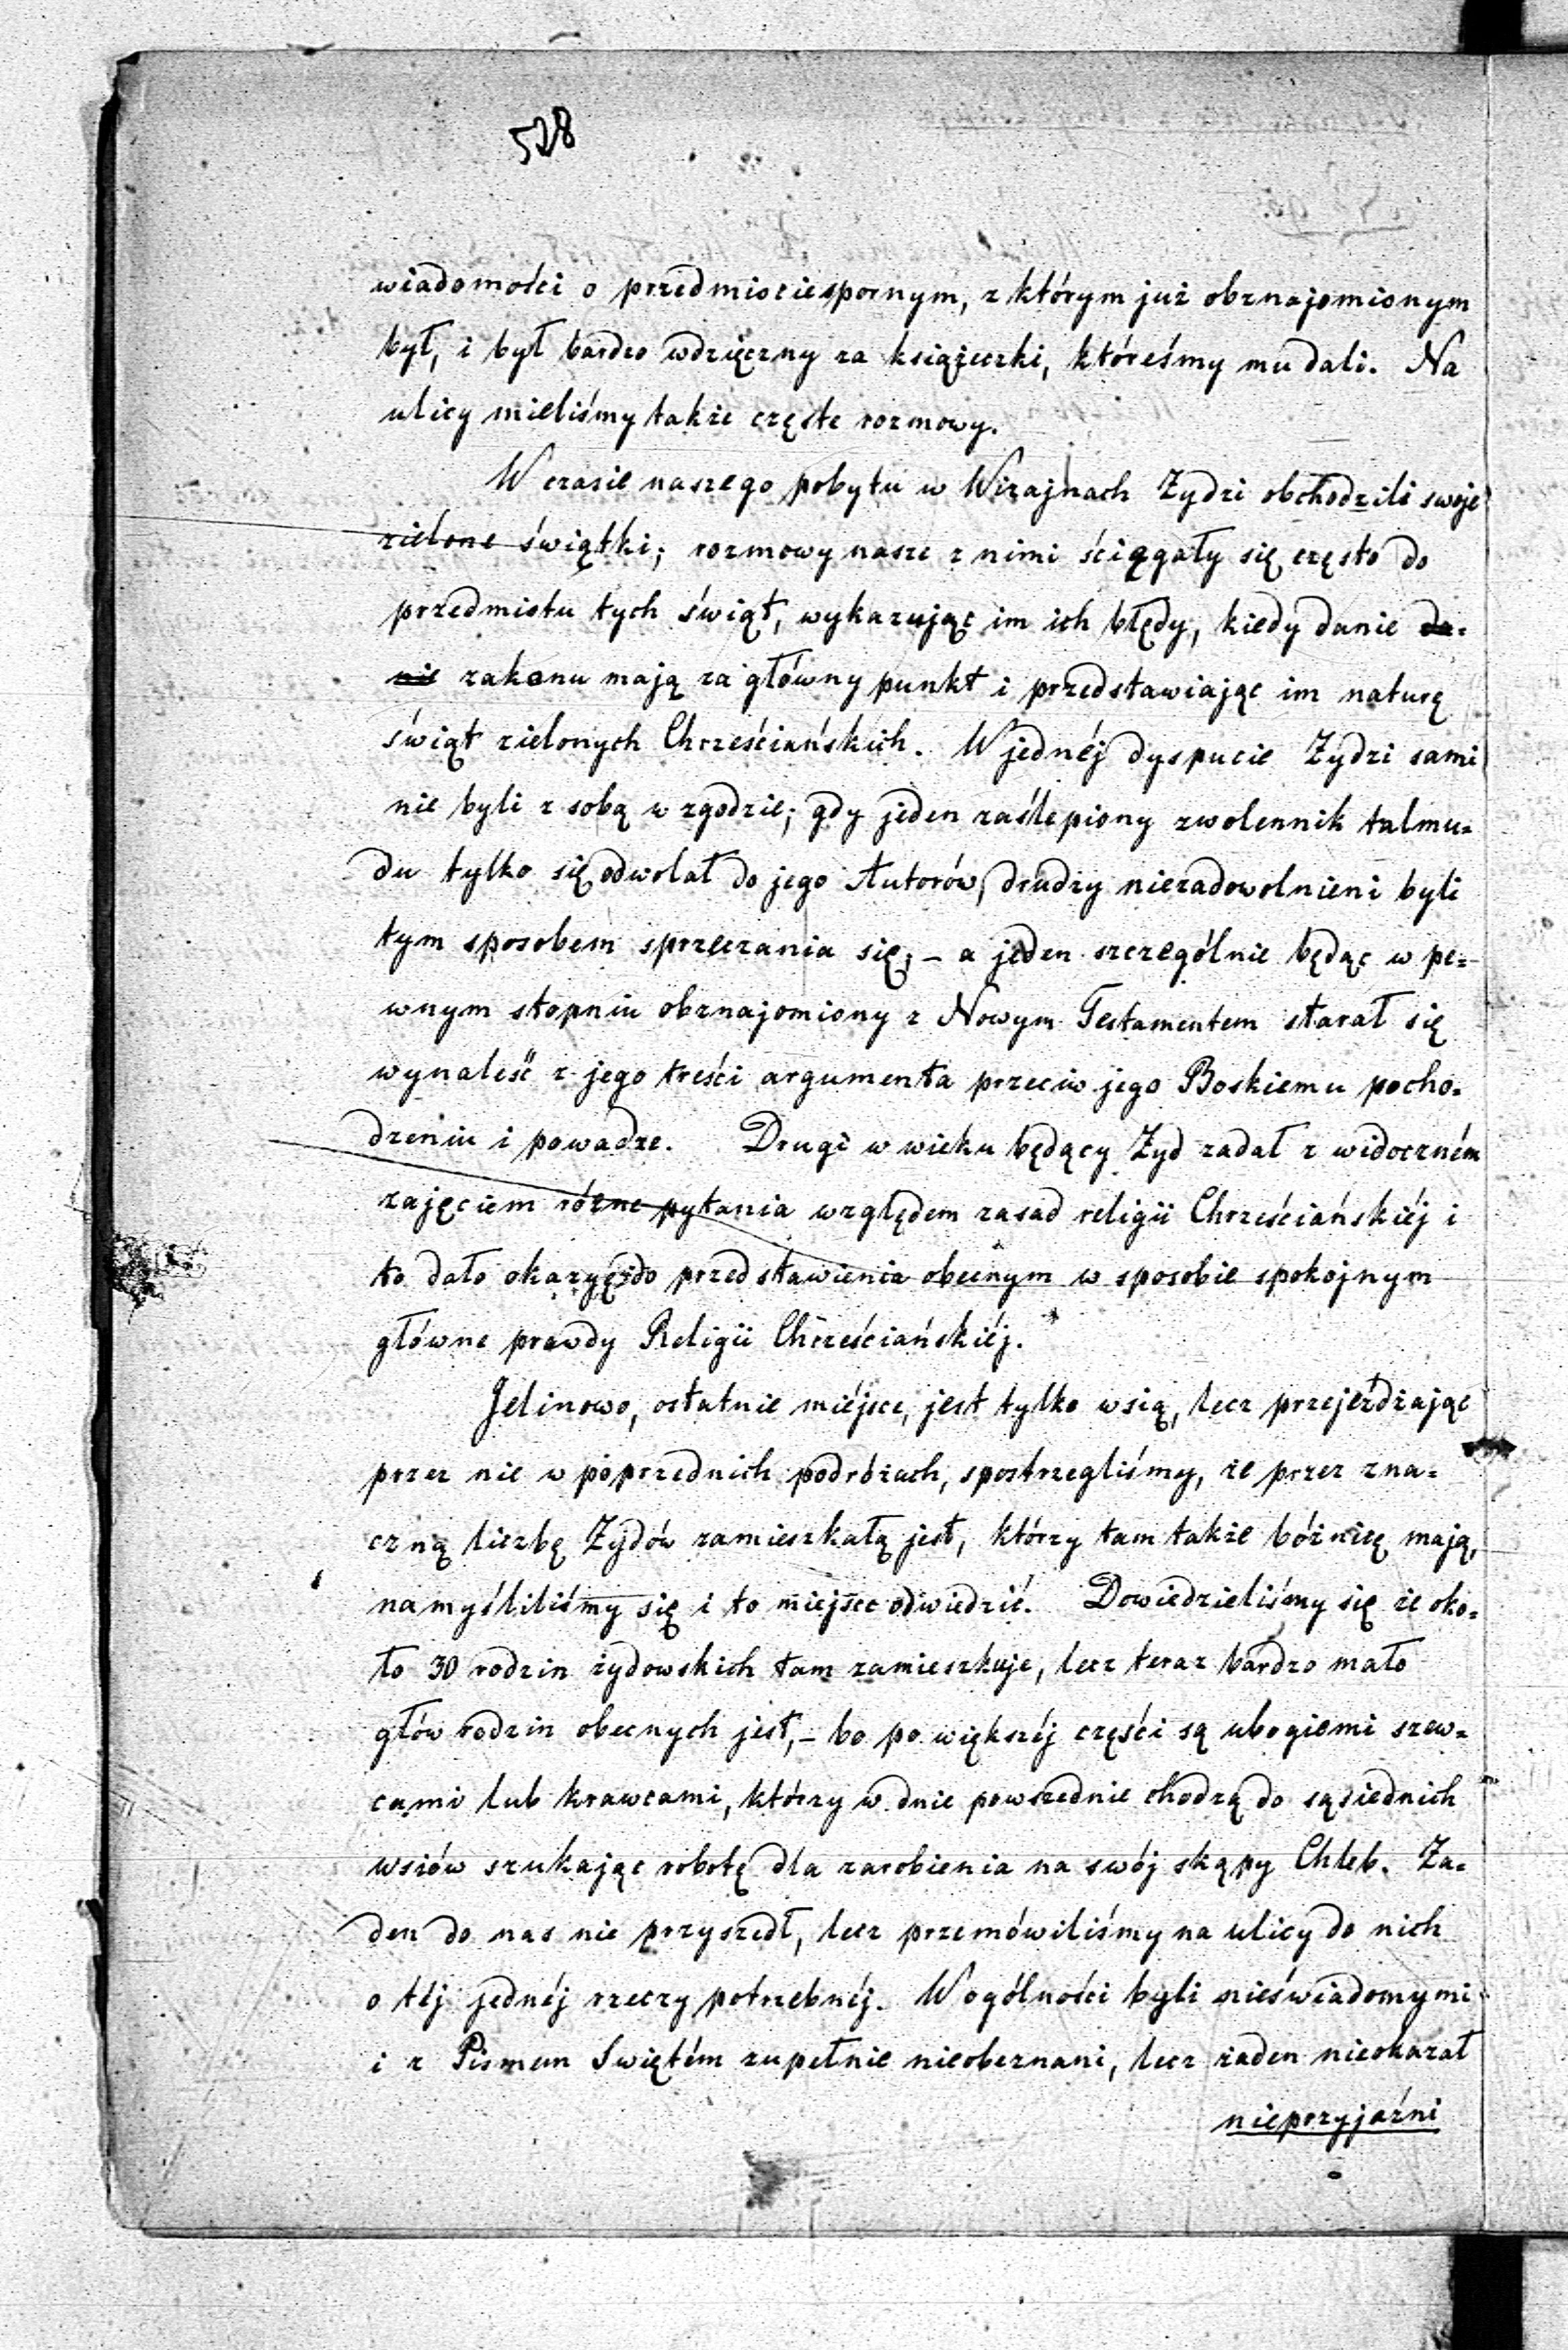 528
wiadomości o przedmiocie spornym, z którym już obznajomionym
był, i był bardzo wdzięczny za książeczki, któreśmy mu dali. Na
ulicy mieliśmy także częste rozmowy.
W czasie naszego pobytu w Wizajnach Żydzi obchodzili swoje
zielone świątki; rozmowy nasze z nimi ściągały się często do
przedmiotu tych świąt, wykazując im ich błędy, kiedy danie da-
nie zakonu mają za główny punkt i przedstawiając im naturę
świąt zielonych Chrześciańskich. W jednéj dyspucie Żydzi sami
nie byli z sobą w zgodzie; gdy jeden zaślepiony zwolennik talmu-
du tylko się odwołał do jego Autorów, drudzy niezadowolnieni byli
tym sposobem sprzeczania się, – a jeden szczególnie będąc w pe-
wnym stopniu obznajomiony z Nowym Testamentem starał się
wynaleść z jego treści argumenta przeciw jego Boskiemu pocho-
dzeniu i powadze. Drugi w wieku będący Żyd zadał z widoczném
zajęciem różne pytania względem zasad religii Chrześciańskiéj i
to dało okazyę do przedstawienia obecnym w sposobie spokojnym
główne prawdy Religii Chrześciańskiéj.
Jelinowo, ostatnie miéjsce, jest tylko wsią, lecz przejeżdżając
przez nie w poprzednich podróżach, spostrzegliśmy, że przez zna-
czną liczbę Żydów zamieszkałą jest, którzy tam także bóżnicę mają,
namyśliliśmy się i to miejsce odwiedzić. Dowiedzieliśmy się że oko-
ło 30 rodzin żydowskich tam zamieszkuje, lecz teraz bardzo mało
głów rodzin obecnych jest, – bo po większéj części są ubogiemi szew-
cami lub krawcami, którzy w dnie powszednie chodzą do sąsiednich
wsiów szukając robotę dla zarobienia na swój skąpy Chleb. Ża-
den do nas nie przyszedł, lecz przemówiliśmy na ulicy do nich
o téj jednéj rzeczy potrzebnéj. W ogólności byli nieświadomymi
i z Pismem Swiętém zupełnie nieobeznani, lecz żaden nieokazał
nieprzyjaźni